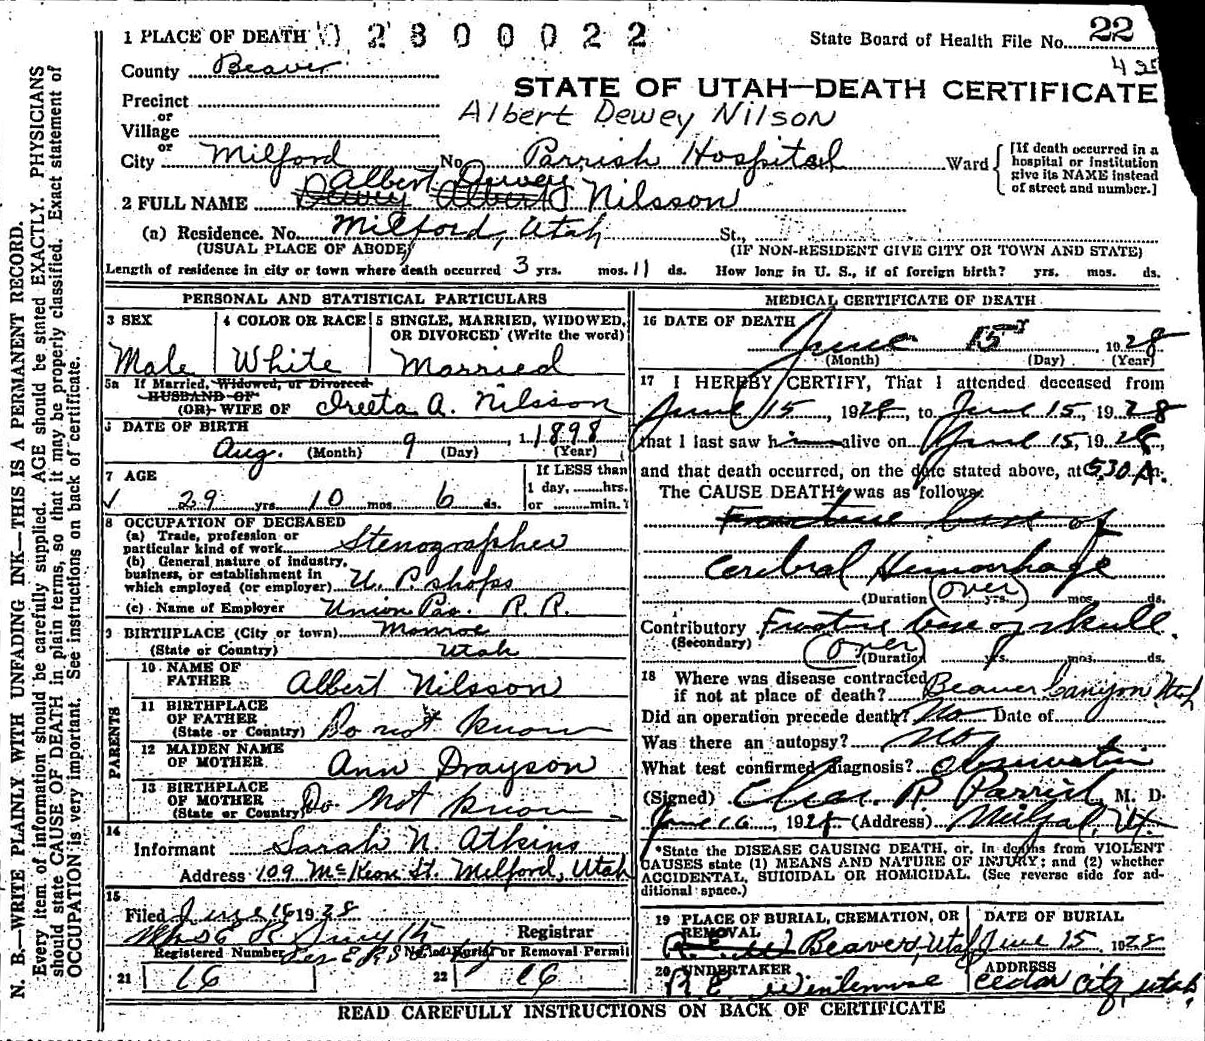 1 PLACE OF DEATH 0 2 8 0 0 0 2 2
State Board of Health File No. 22
County Beaver
STATE OF UTAH—DEATH CERTIFICATE
Precinct
or
Albert Dewey Nilson
Village
or
City Milford No. Parrish Hospital Ward
[If death occurred in a hospital or institution give its NAME instead of street and number.]
Albert Dewey
2 FULL NAME Dewey Albert Nilsson
(a) Residence. No. Milford, Utah St.,
(USUAL PLACE OF ABODE) (IF NON-RESIDENT GIVE CITY OR TOWN AND STATE)
Length of residence in city or town where death occurred 3 yrs. mos. 11 ds. How long in U. S., if of foreign birth? yrs. mos. ds.
PERSONAL AND STATISTICAL PARTICULARS
3 SEX 4 COLOR OR RACE 5 SINGLE, MARRIED, WIDOWED, OR DIVORCED (Write the word)
Male White Married
5a If Married, Widowed, or Divorced
HUSBAND OF
(OR) WIFE OF Ireeta A. Nilsson
6 DATE OF BIRTH
Aug. (Month) 9 (Day), 1898 (Year)
7 AGE
29 yrs. 10 mos. 6 ds.
If LESS than
1 day, hrs.
or min.
8 OCCUPATION OF DECEASED
(a) Trade, profession or
particular kind of work Stenographer
(b) General nature of industry,
business, or establishment in
which employed (or employer) U. P. shops
(c) Name of Employer Union Pac. R. R.
9 BIRTHPLACE (City or town) Monroe
(State or Country) Utah
PARENTS
10 NAME OF
FATHER Albert Nilsson
11 BIRTHPLACE
OF FATHER
(State or Country) Do not know
12 MAIDEN NAME
OF MOTHER Ann Drayson
13 BIRTHPLACE
OF MOTHER
(State or Country) Do Not know
14
Informant Sarah N. Atkins
Address 109 McKeon St. Milford, Utah
15
Filed June 16 1928
Registrar
Registered Number Burial or Removal Permit
21 16 22 16
MEDICAL CERTIFICATE OF DEATH
16 DATE OF DEATH
June 15, 1928
(Month) (Day) (Year)
17 I HEREBY CERTIFY, That I attended deceased from
June 15, 1928, to June 15, 1928
that I last saw him alive on June 15, 1928,
and that death occurred, on the date stated above, at 5:30 A. m.
The CAUSE DEATH* was as follows:
Fracture base of
Cerebral Hemorrhage
(Duration over yrs. mos. ds.
Contributory Fracture base of skull.
(Secondary) over (Duration yrs. mos. ds.
18 Where was disease contracted
if not at place of death? Beaver Canyon Utah
Did an operation precede death? No Date of
Was there an autopsy? No
What test confirmed diagnosis? observation
(Signed) Chas. R. Parrish, M. D.
June 16, 1928 (Address) Milford, Ut.
*State the DISEASE CAUSING DEATH, or, in deaths from VIOLENT
CAUSES state (1) MEANS AND NATURE OF INJURY; and (2) whether
ACCIDENTAL, SUICIDAL OR HOMICIDAL. (See reverse side for ad-
ditional space.)
19 PLACE OF BURIAL, CREMATION, OR REMOVAL DATE OF BURIAL
Beaver, Utah June 15 1928
20 UNDERTAKER ADDRESS
R. E. Cedar City, Utah
READ CAREFULLY INSTRUCTIONS ON BACK OF CERTIFICATE
N. B.—WRITE PLAINLY WITH UNFADING INK—THIS IS A PERMANENT RECORD.
Every item of information should be carefully supplied. AGE should be stated EXACTLY. PHYSICIANS
should state CAUSE OF DEATH in plain terms, so that it may be properly classified. Exact statement of
OCCUPATION is very important. See instructions on back of certificate.